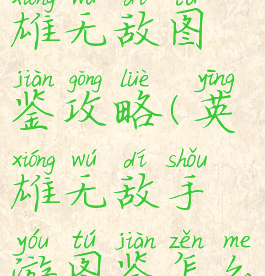 xióng wú dí tú
雄无敌图
jiàn gōng lüè yīng
鉴攻略(英
xióng wú dí shǒu
雄无敌手
yóu tú jiàn zěn me
游图鉴怎么